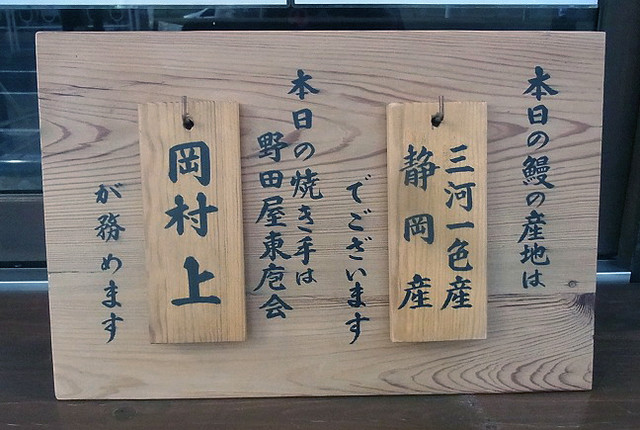 本日の鰻の産地は
三河一色産
静岡産
でございます
本日の焼き手は
野田屋東庖会
岡村上
が務めます